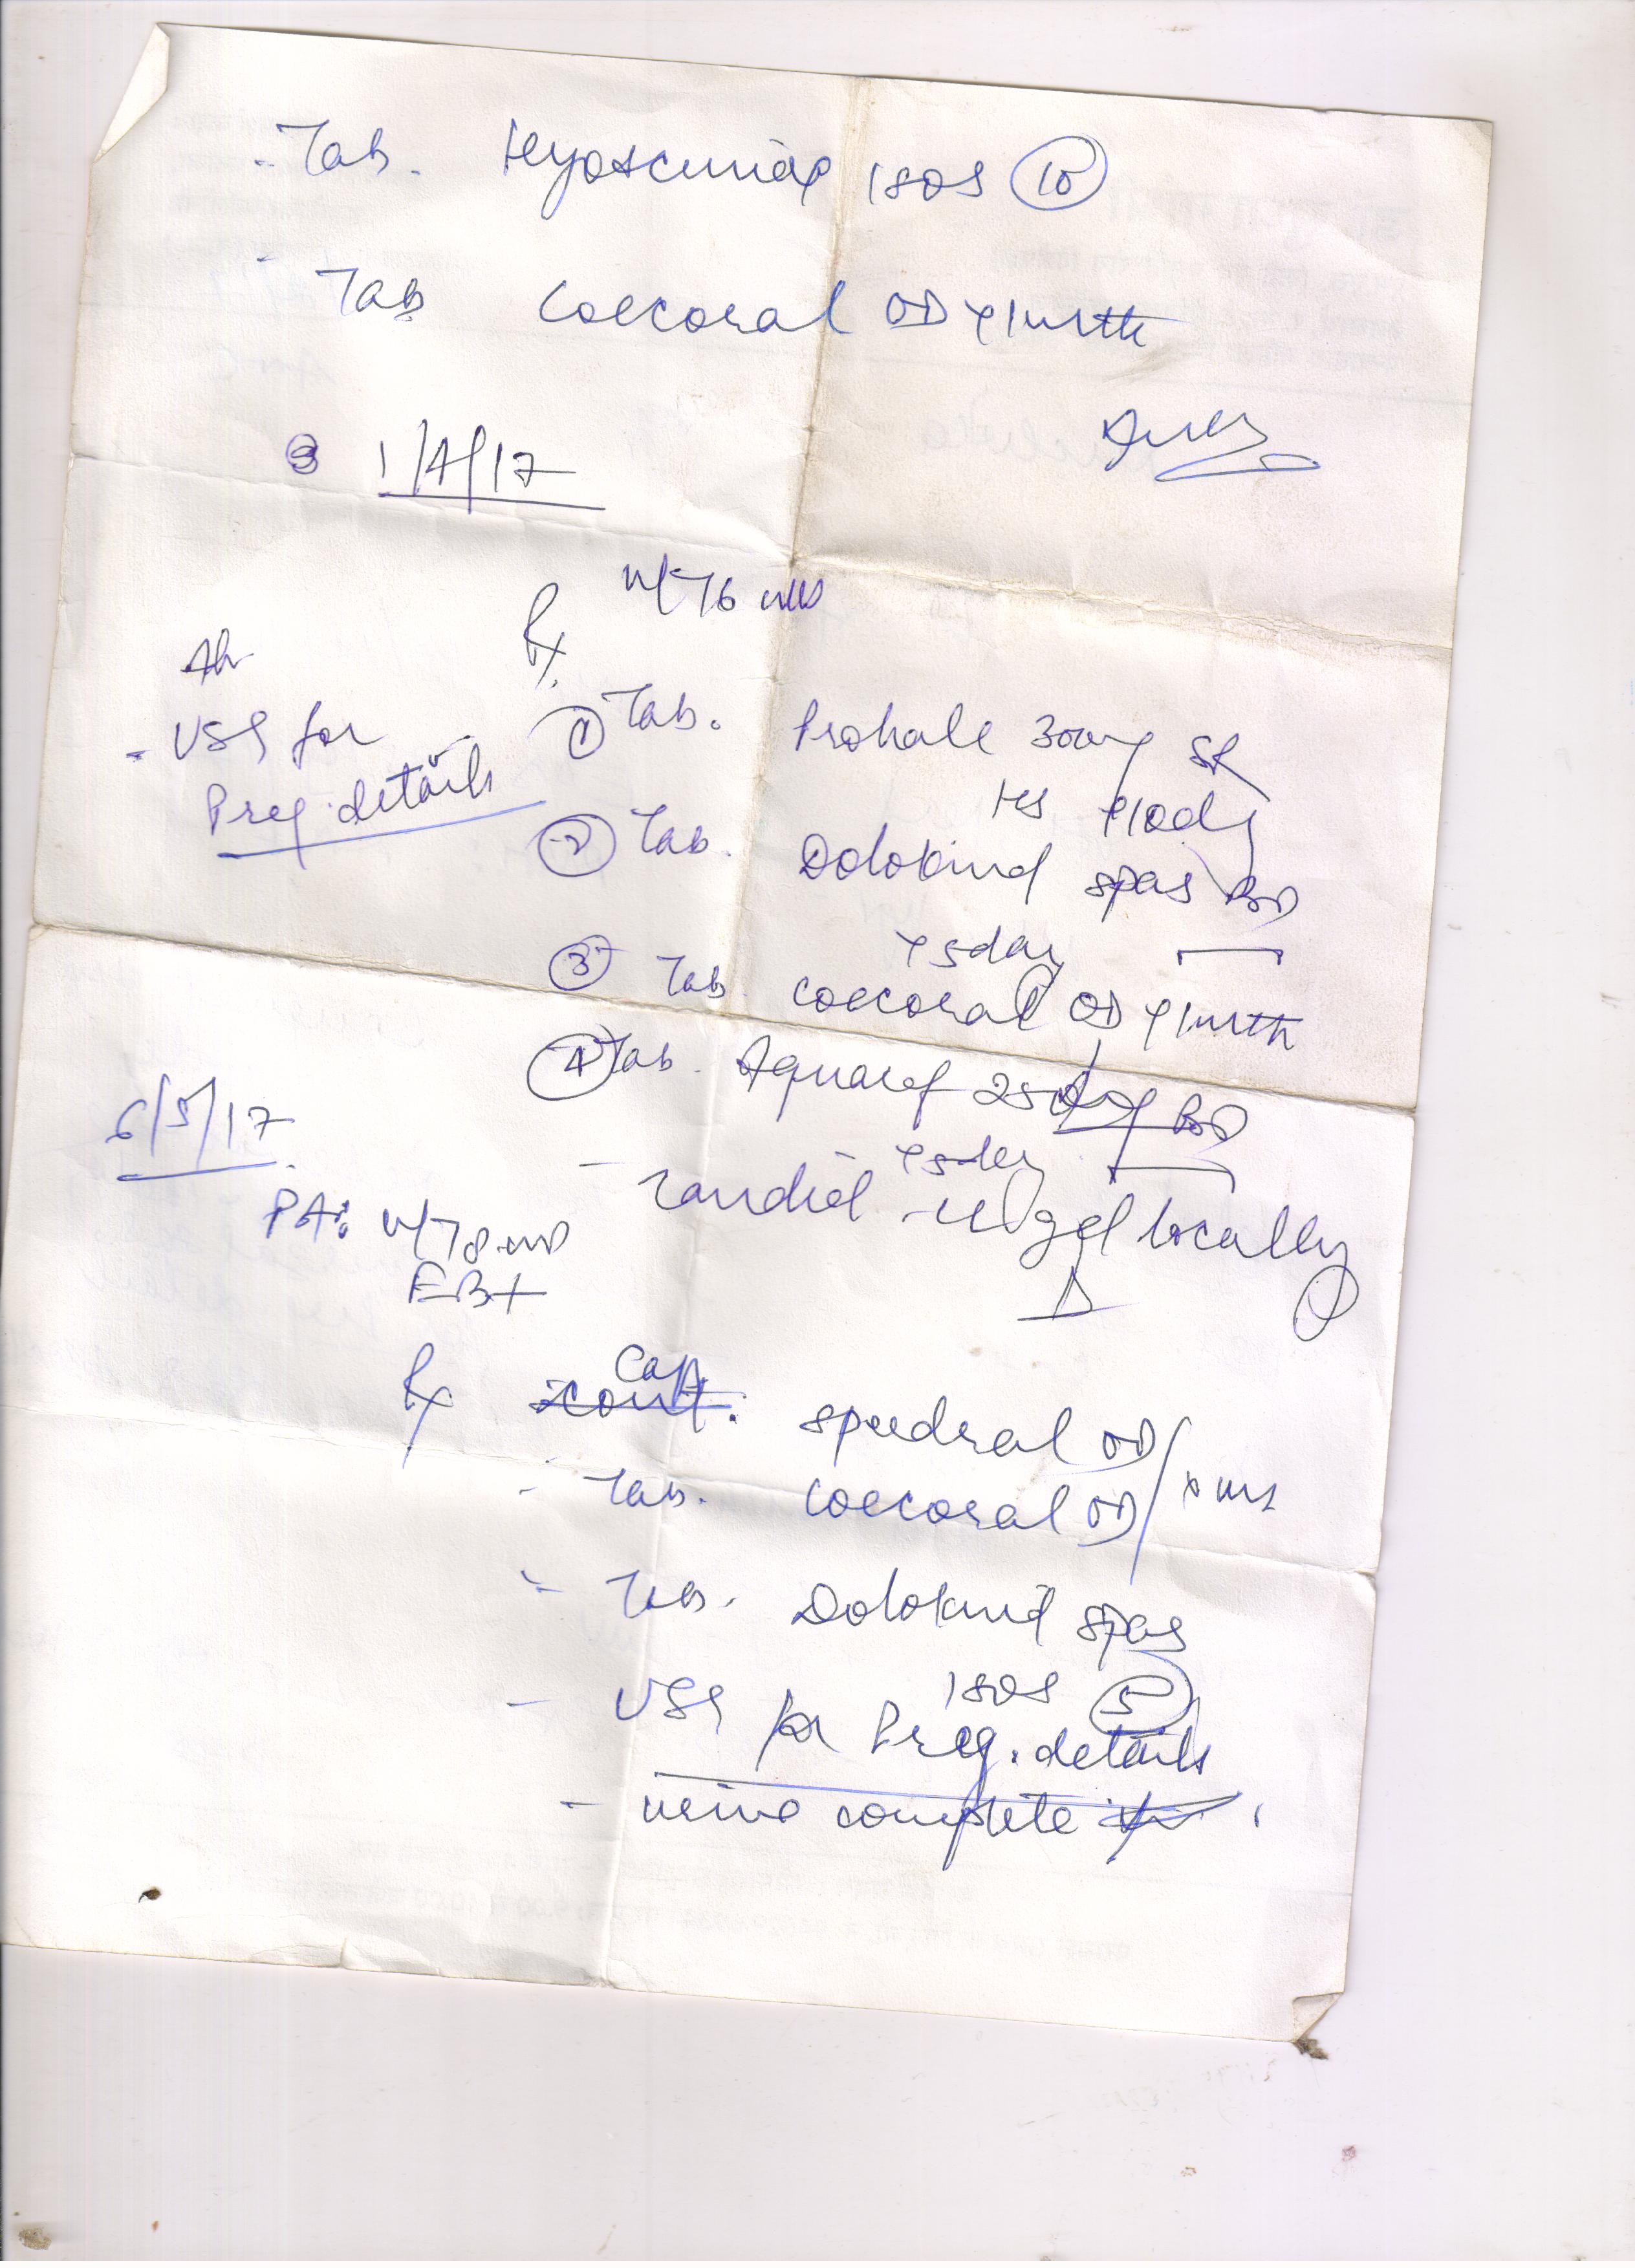 - Tab. Hyoscimax 1SOS 10
- Tab Coecoral OD x 1 mnth
1/4/17
Rx
Tab.
- USG for
Preg. details
① Tab. Prohale 300mg SR
HS x 10 day
② Tab. Dolokind spas BD
x 5 day
③ Tab Coecoral OD x 1 mnth
④ Tab. Aquacef 250mg BD
x 5 day
- Candid -V gel locally
6/5/17
PA:
FB+
Rx Cap. Speedral OD
- Tab. Coecoral OD
- Tab. Dolokind spas
1SOS 5
- USG for Preg. details
- urine complete